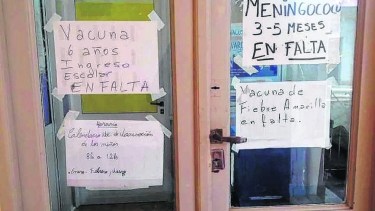 Vacuna
6 años
Ingreso
Escolar
EN FALTA
Horario
Calendario de vacunación
de los niños
8½ a 12h
MENINGOCOCO
3-5 MESES
EN FALTA
Vacuna de
Fiebre Amarilla
en falta.